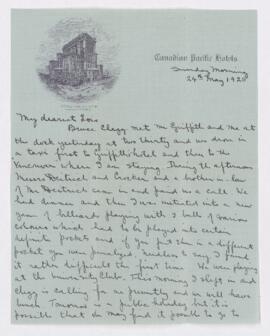 Canadian Pacific Hotels
Sunday Morning
24th May 1925
My dearest Lois
Bruce Clegg met Mr Griffith and me at
the dock yesterday at two thirty and we drove in
a taxi first to Griffith's hotel and then to the
Vancouver where I am staying. During the afternoon
Messrs and Crocker and a brother in law
of Mr came in and paid us a call. We
had dinner and then I was initiated into a new
game of billiards playing with 5 balls of various
colours which had to be played into certain
definite pockets and if you put them in a different
pocket you were penalized, needless to say I found
it rather difficult the first time. We were playing
at the University Club. This morning I slept in and
Clegg is calling for me presently and we will have
lunch. Tomorrow is a public holiday but it is
possible that we may find it possible to go to